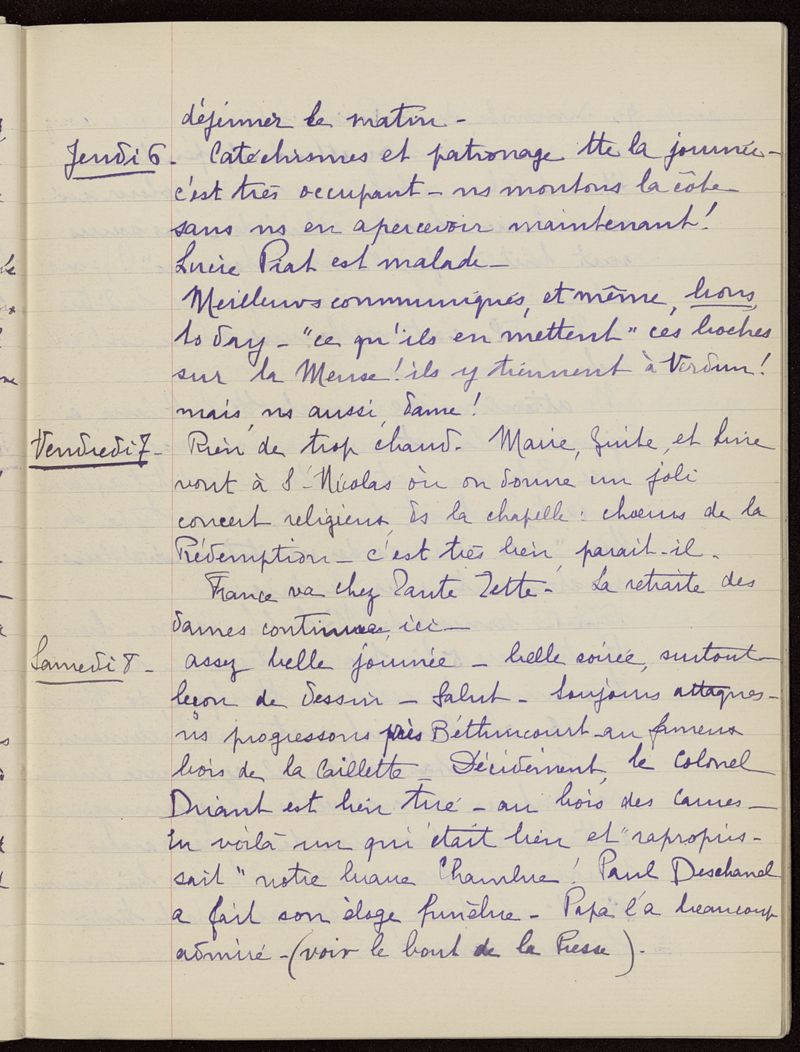 déjeuner le matin -
Jeudi 6 - Catéchismes et patronage tte la journée -
c'est très occupant - ns montons la côte
sans ns en apercevoir maintenant !
Lucie Piat est malade -
Meilleurs communiqués, et même, bons,
to day - "ce qu'ils en mettent" ces boches
sur la Meuse ! ils y tiennent à Verdun !
mais, ns aussi, dame !
Vendredi 7 - Rien de trop chaud. Marie, Zuite, et Lucie
vont à St-Nicolas où on donne un joli
concert religieux, ds la chapelle : chœurs de la
Rédemption - c'est très bien, paraît-il.
France va chez Tante Zette - La retraite des
dames continue, ici -
Samedi 8 - assez belle journée - belle soirée, surtout -
leçon de dessin - Salut - Toujours attaques -
ns progressons près Béthincourt - au fameux
bois de la Caillette - Décidément, le Colonel
Driant est bien tué - au bois des Caures -
En voilà un qui était bien et "rapropris-
sait" notre brave Chambre ! Paul Deschanel
a fait son éloge funèbre - Papa l'a beaucoup
admiré - (voir le bout de la Presse).